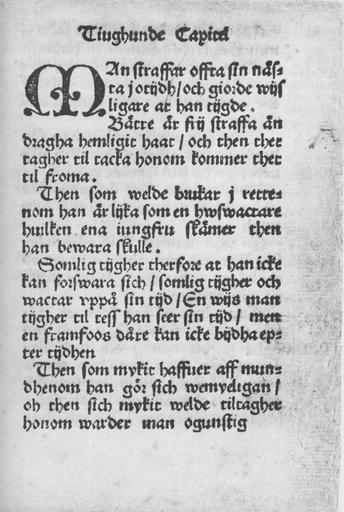 Tiughunde Capitel
MAn straffar offta sin näs⸗
ta j otijdh/ och giorde wijs
ligare at han tijgde.
Bätre är frij straffa än
dragha hemligit haat / och then thet
tagher til tacka honom kommer thet
til froma.
Then som welde brukar j rette⸗
nom han är lijka som en hwswactare
huilken ena iungfru skämer then
han bewara skulle.
Somlig tijgher therfore at han icke
kan forswara sich / somlig tijgher och
wactar vppå sin tijd / En wijs man
tijgher til tess han seer sin tijd / men
en framfoos dåre kan icke bijdha ep⸗
ter tijdhen
Then som mykit haffuer aff mun⸗
dhenom han gör sich wemydigan /
oh then sich mykit welde tiltagher
honom warder man ogunstig